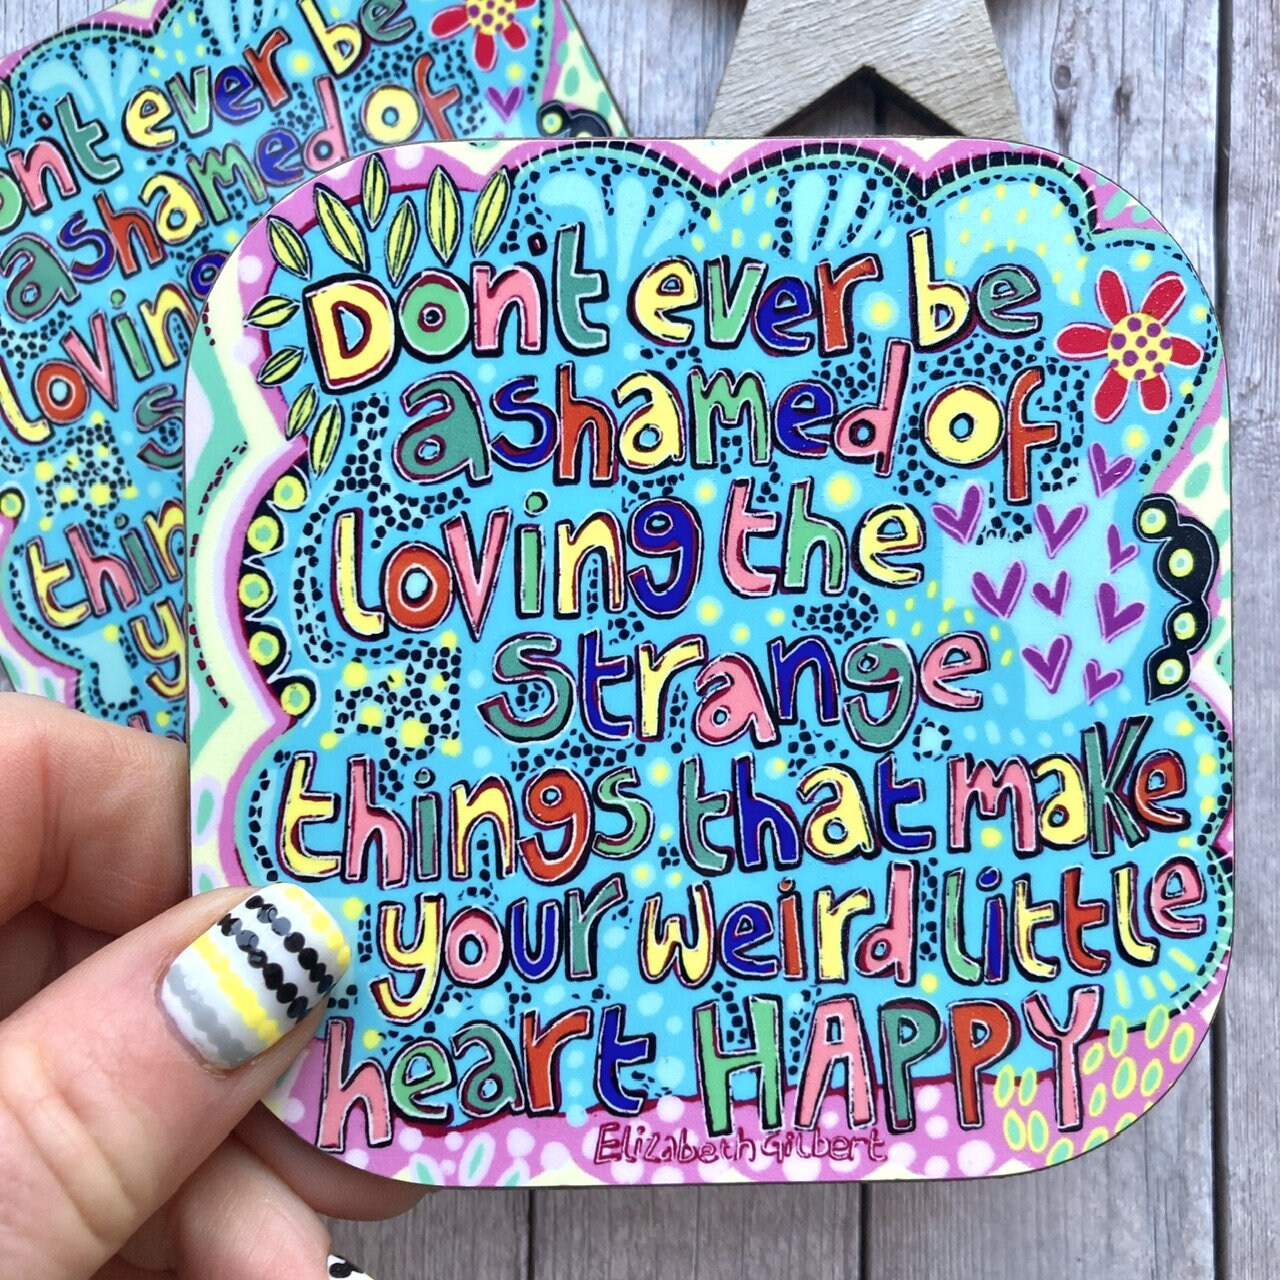 Don't ever be
ashamed of
loving the
strange
things that make
your weird little
heart HAPPY
Elizabeth Gilbert
on't ever be
ashamed of
lovin
s
thin
y